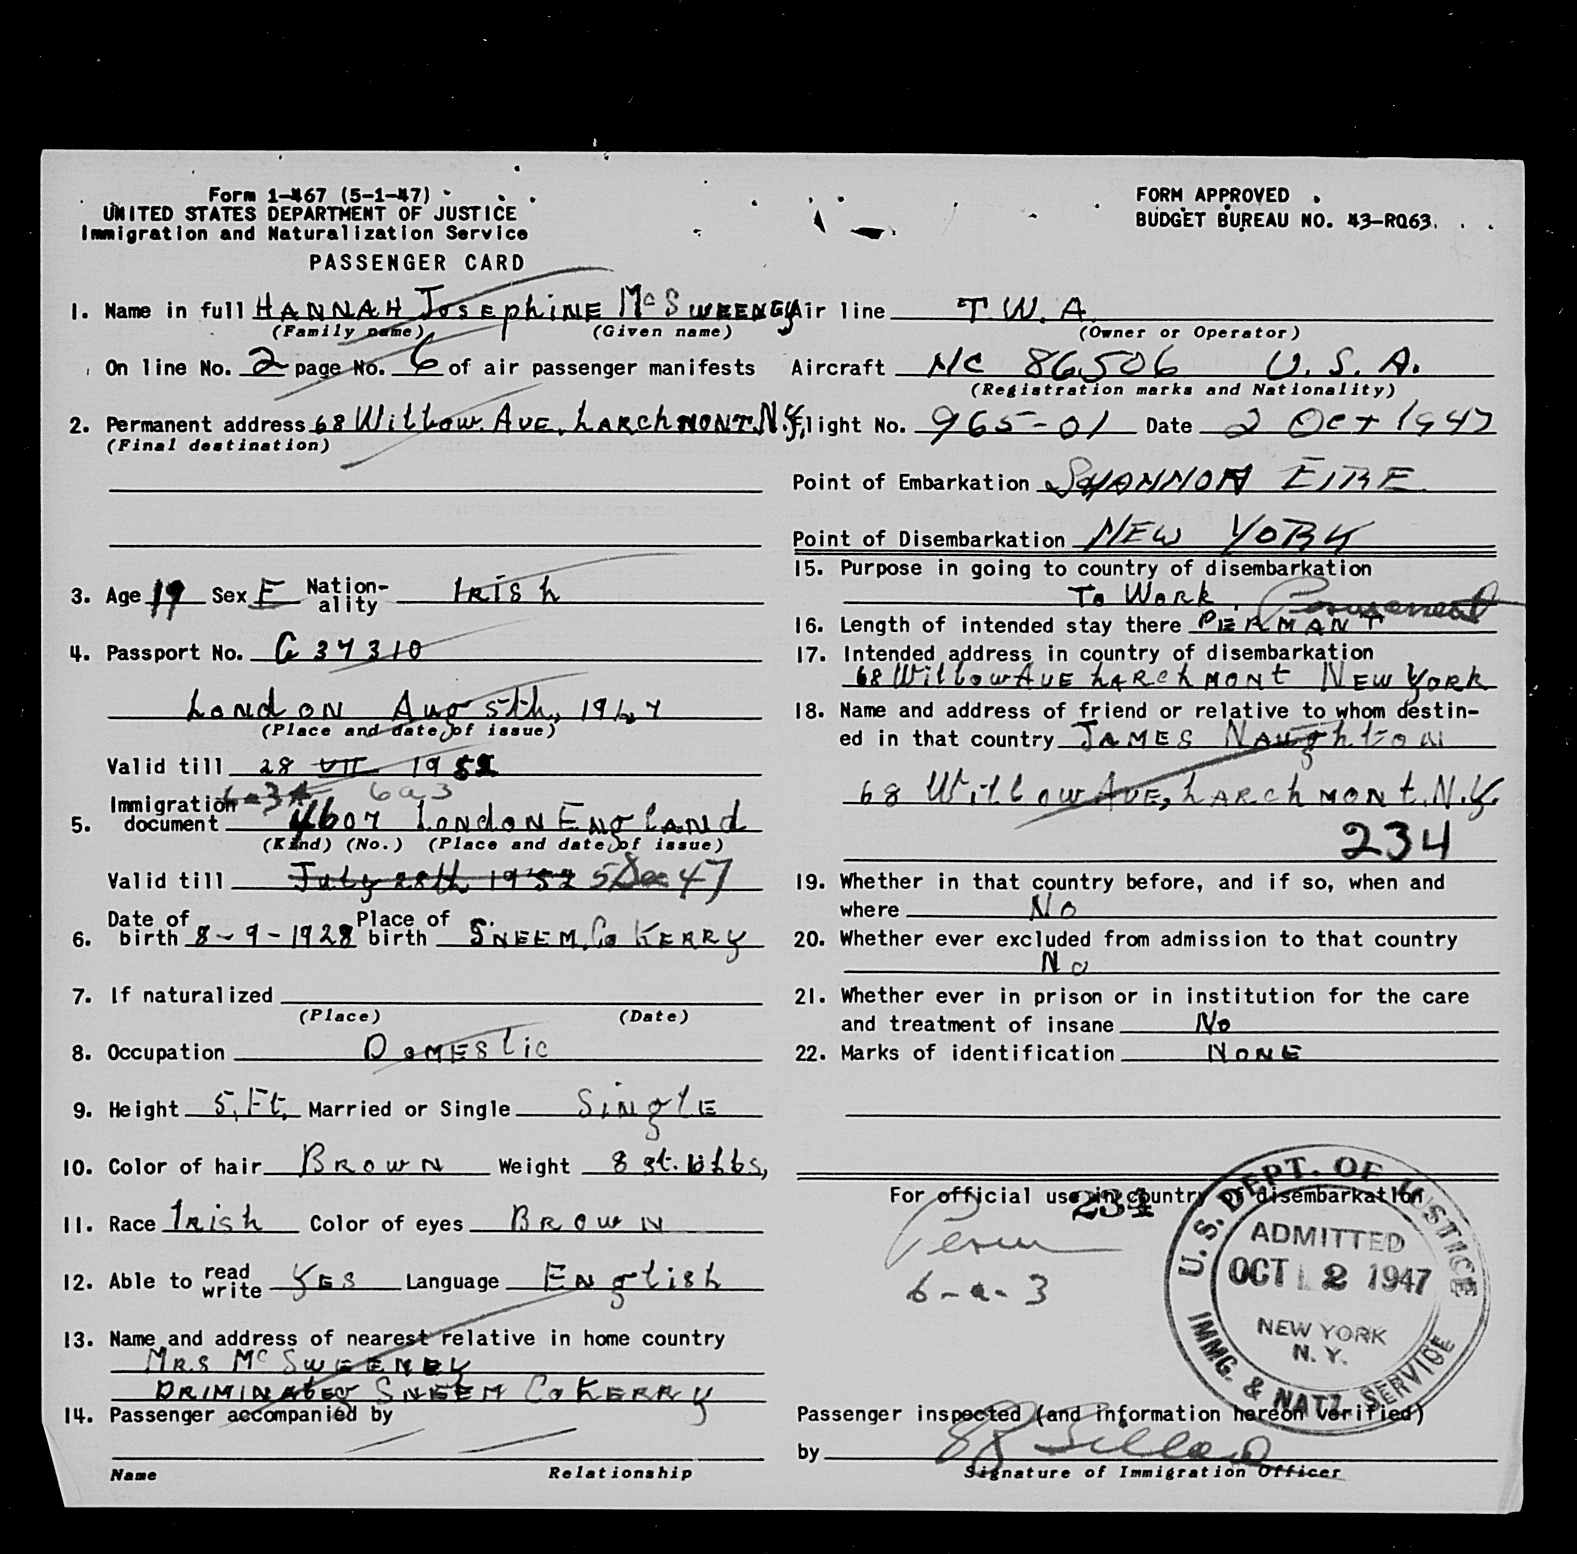 Form I-467 (5-1-47)
UNITED STATES DEPARTMENT OF JUSTICE
Immigration and Naturalization Service
PASSENGER CARD
FORM APPROVED
BUDGET BUREAU NO. 43-RO63.
1. Name in full HANNAH JosephiNE McSWEENEY
(Family name) (Given name)
On line No. 2 page No. 6 of air passenger manifests
2. Permanent address 68 Willow. AVE. LARChMONT. N.Y.
(Final destination)
3. Age 19 Sex F Nation-ality IRISh
4. Passport No. C 37310
LondON Aug 5th, 1947
(Place and date of issue)
Valid till 28 VII 1952
5. Immigration document 6a3 4607 LONdON ENgLANd
(Kind) (No.) (Place and date of issue)
Valid till July 28th 1952 5 Dec 47
6. Date of birth 8-9-1928 Place of birth SNEEM. Co KERRY
7. If naturalized
(Place) (Date)
8. Occupation DOMEStic
9. Height 5. Ft. Married or Single SiNglE
10. Color of hair BROWN Weight 8 st. lbs,
11. Race IRish Color of eyes BROWN
12. Able to read write YES Language ENglish
13. Name and address of nearest relative in home country
MRS McSWEENEY
SNEEM Co KERRY
14. Passenger accompanied by
Name Relationship
Air line T.W.A.
(Owner or Operator)
Aircraft NC 86506 U.S.A.
(Registration marks and Nationality)
Flight No. 965-01 Date 2 Oct 1947
Point of Embarkation SHANNON EIRE
Point of Disembarkation NEW YORK
15. Purpose in going to country of disembarkation
To WORK. Permanent
16. Length of intended stay there PERMANT
17. Intended address in country of disembarkation
68 Willow AVE LARChMONt NEW YORK
18. Name and address of friend or relative to whom destin-
ed in that country JAMES NAughtON
68 Willow AVE, LARChMONt. N.Y.
234
19. Whether in that country before, and if so, when and
where No
20. Whether ever excluded from admission to that country
No
21. Whether ever in prison or in institution for the care
and treatment of insane No
22. Marks of identification NONE
For official use in country of disembarkation
234
Perm
6-a-3
U.S. DEPT. OF JUSTICE
ADMITTED
OCT 2 1947
NEW YORK
N. Y.
IMMG. & NATZ. SERVICE
Passenger inspected (and information hereon verified)
by
Signature of Immigration Officer